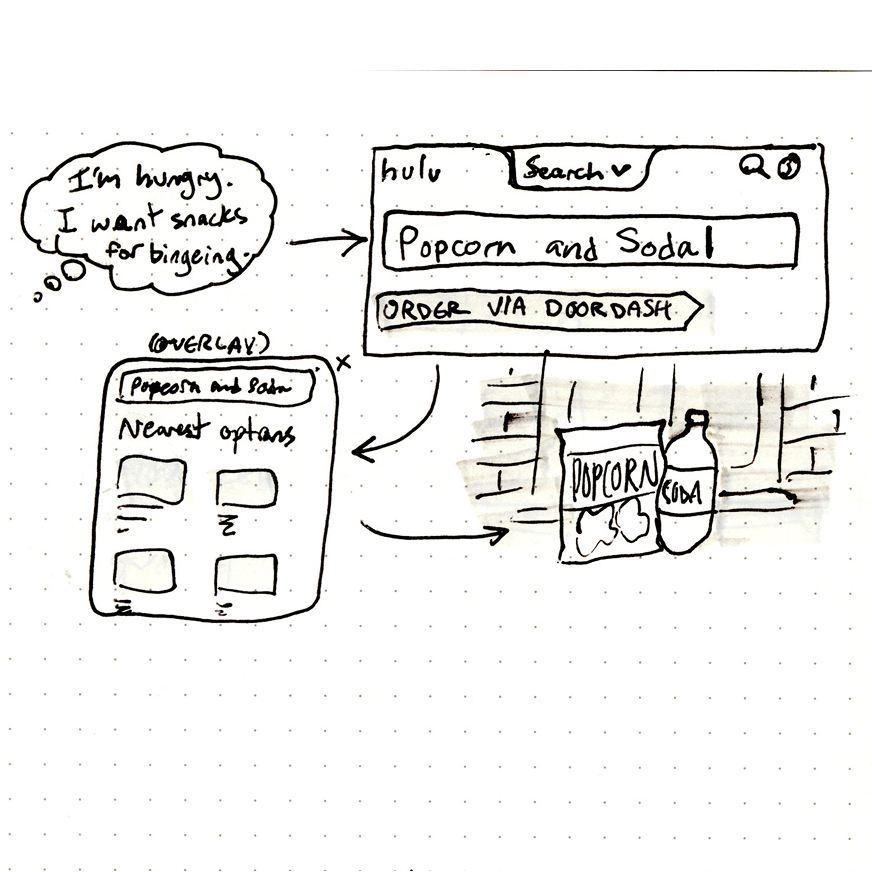 I'm hungry.
I want snacks
for bingeing.
hulu
Search
Popcorn and Soda
ORDER VIA DOORDASH
(OVERLAY)
x
Popcorn and Soda
Nearest options
POPCORN
SODA